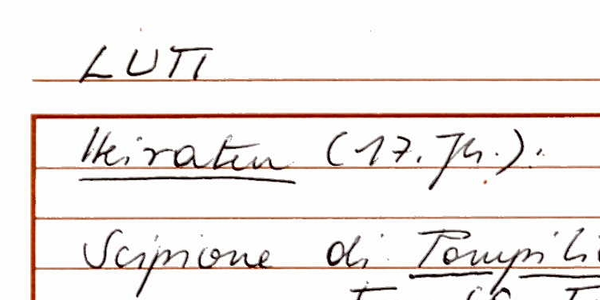 LUTI
Heiraten (17. Jh.).
Scipione di Pompili